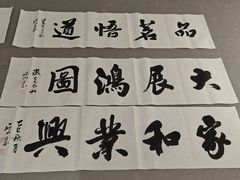 品茗悟道
大展鴻圖
家和業興